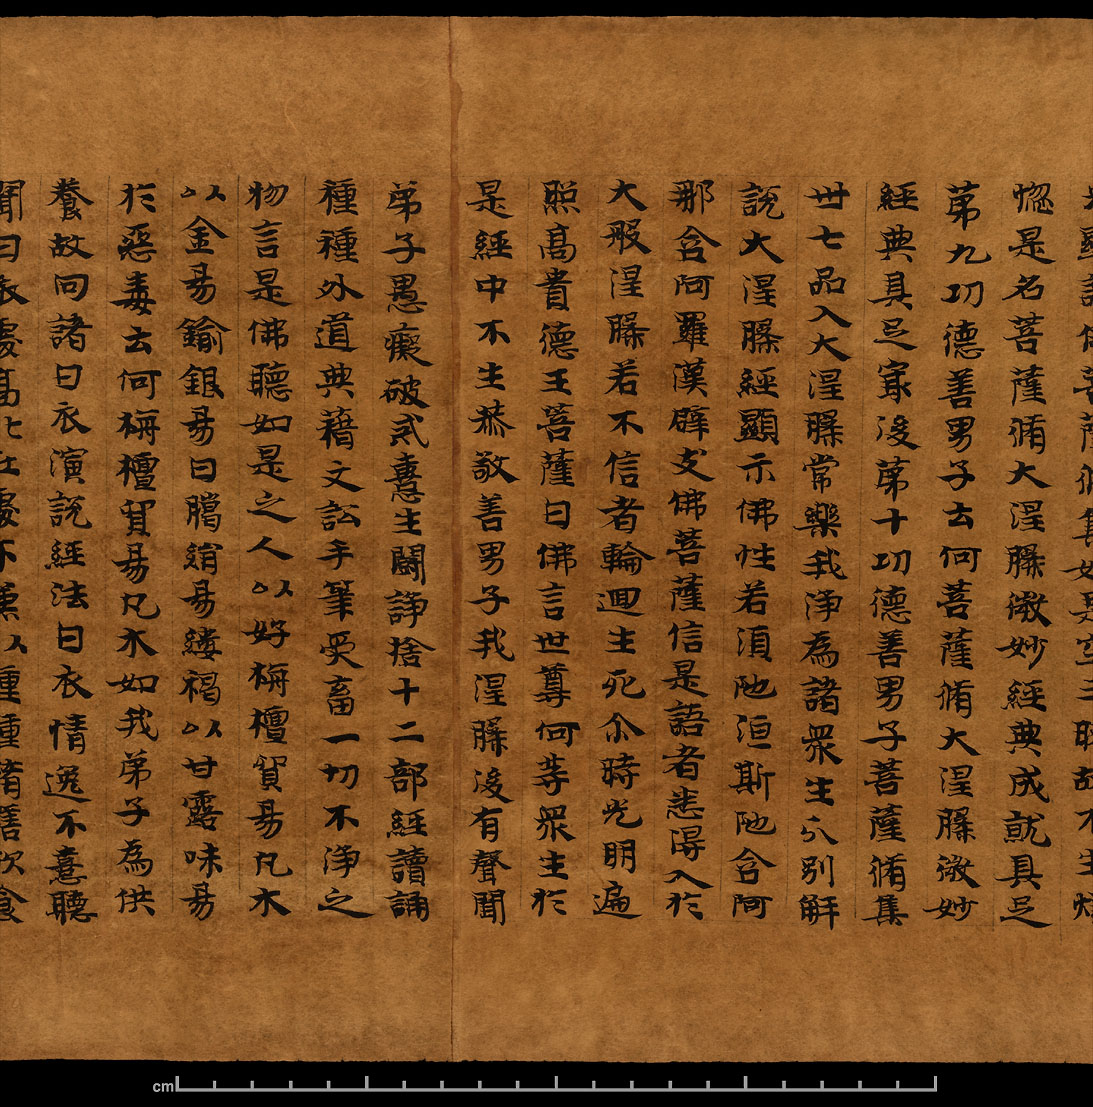 顯說佛菩薩脩集如是空三昧故不生煩
惚是名菩薩脩大涅槃微妙經典成就具足
苐九功德善男子云何菩薩脩大涅槃微妙
經典具足㝡後苐十功德善男子菩薩脩集
卅七品入大涅槃常樂我淨為諸衆生分別解
說大涅槃經顯示佛性若湏陁洹斯陁含阿
那含阿羅漢辟支佛菩薩信是語者悉得入於
大般涅槃若不信者輪迴生死尒時光明遍
照髙貴德王菩薩曰佛言世尊何等衆生於
是經中不生恭敬善男子我涅槃後有聲聞
弟子愚癡破貳憙生鬪諍捨十二部經讀誦
種種外道典藉文訟手筆受畜一切不淨之
物言是佛聽如是之人以好栴檀貿易凡木
以金易鍮銀易曰鑞絹易縷褐以甘露味易
於惡毒云何栴檀貿易凡木如我弟子為供
養故向諸曰衣演說經法曰衣情逸不憙聽
聞曰衣處髙比丘處下兼以種種餚饍飲食